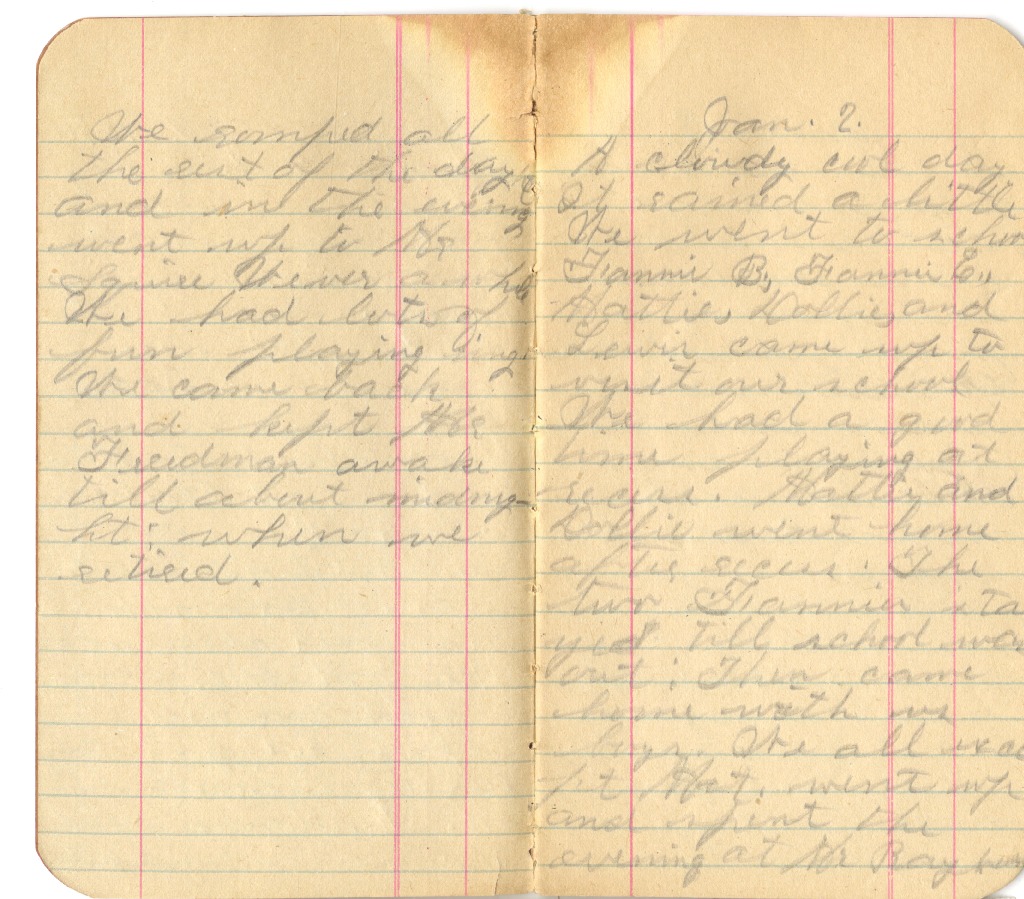 We romped all
the rest of the day
and in the evening
went up to Mr
Squire Wever a while
We had lots of
fun playing
We came back
and kept Mr
Freedman awake
till about midnig-
ht; when we
retired.
Jan. 2.
A cloudy cool day
It rained a little
We went to school
Fannie B., Fannie E.,
Hattie, Dollie, and
Lewis came up to
visit our school
We had a good
time playing at
recess. Hattie and
Dollie went home
after recess. The
two Fannies sta
yed till school was
out; Then came
home with us
boys. We all exce
pt Hat. went up
and spent the
evening at Mr Ray